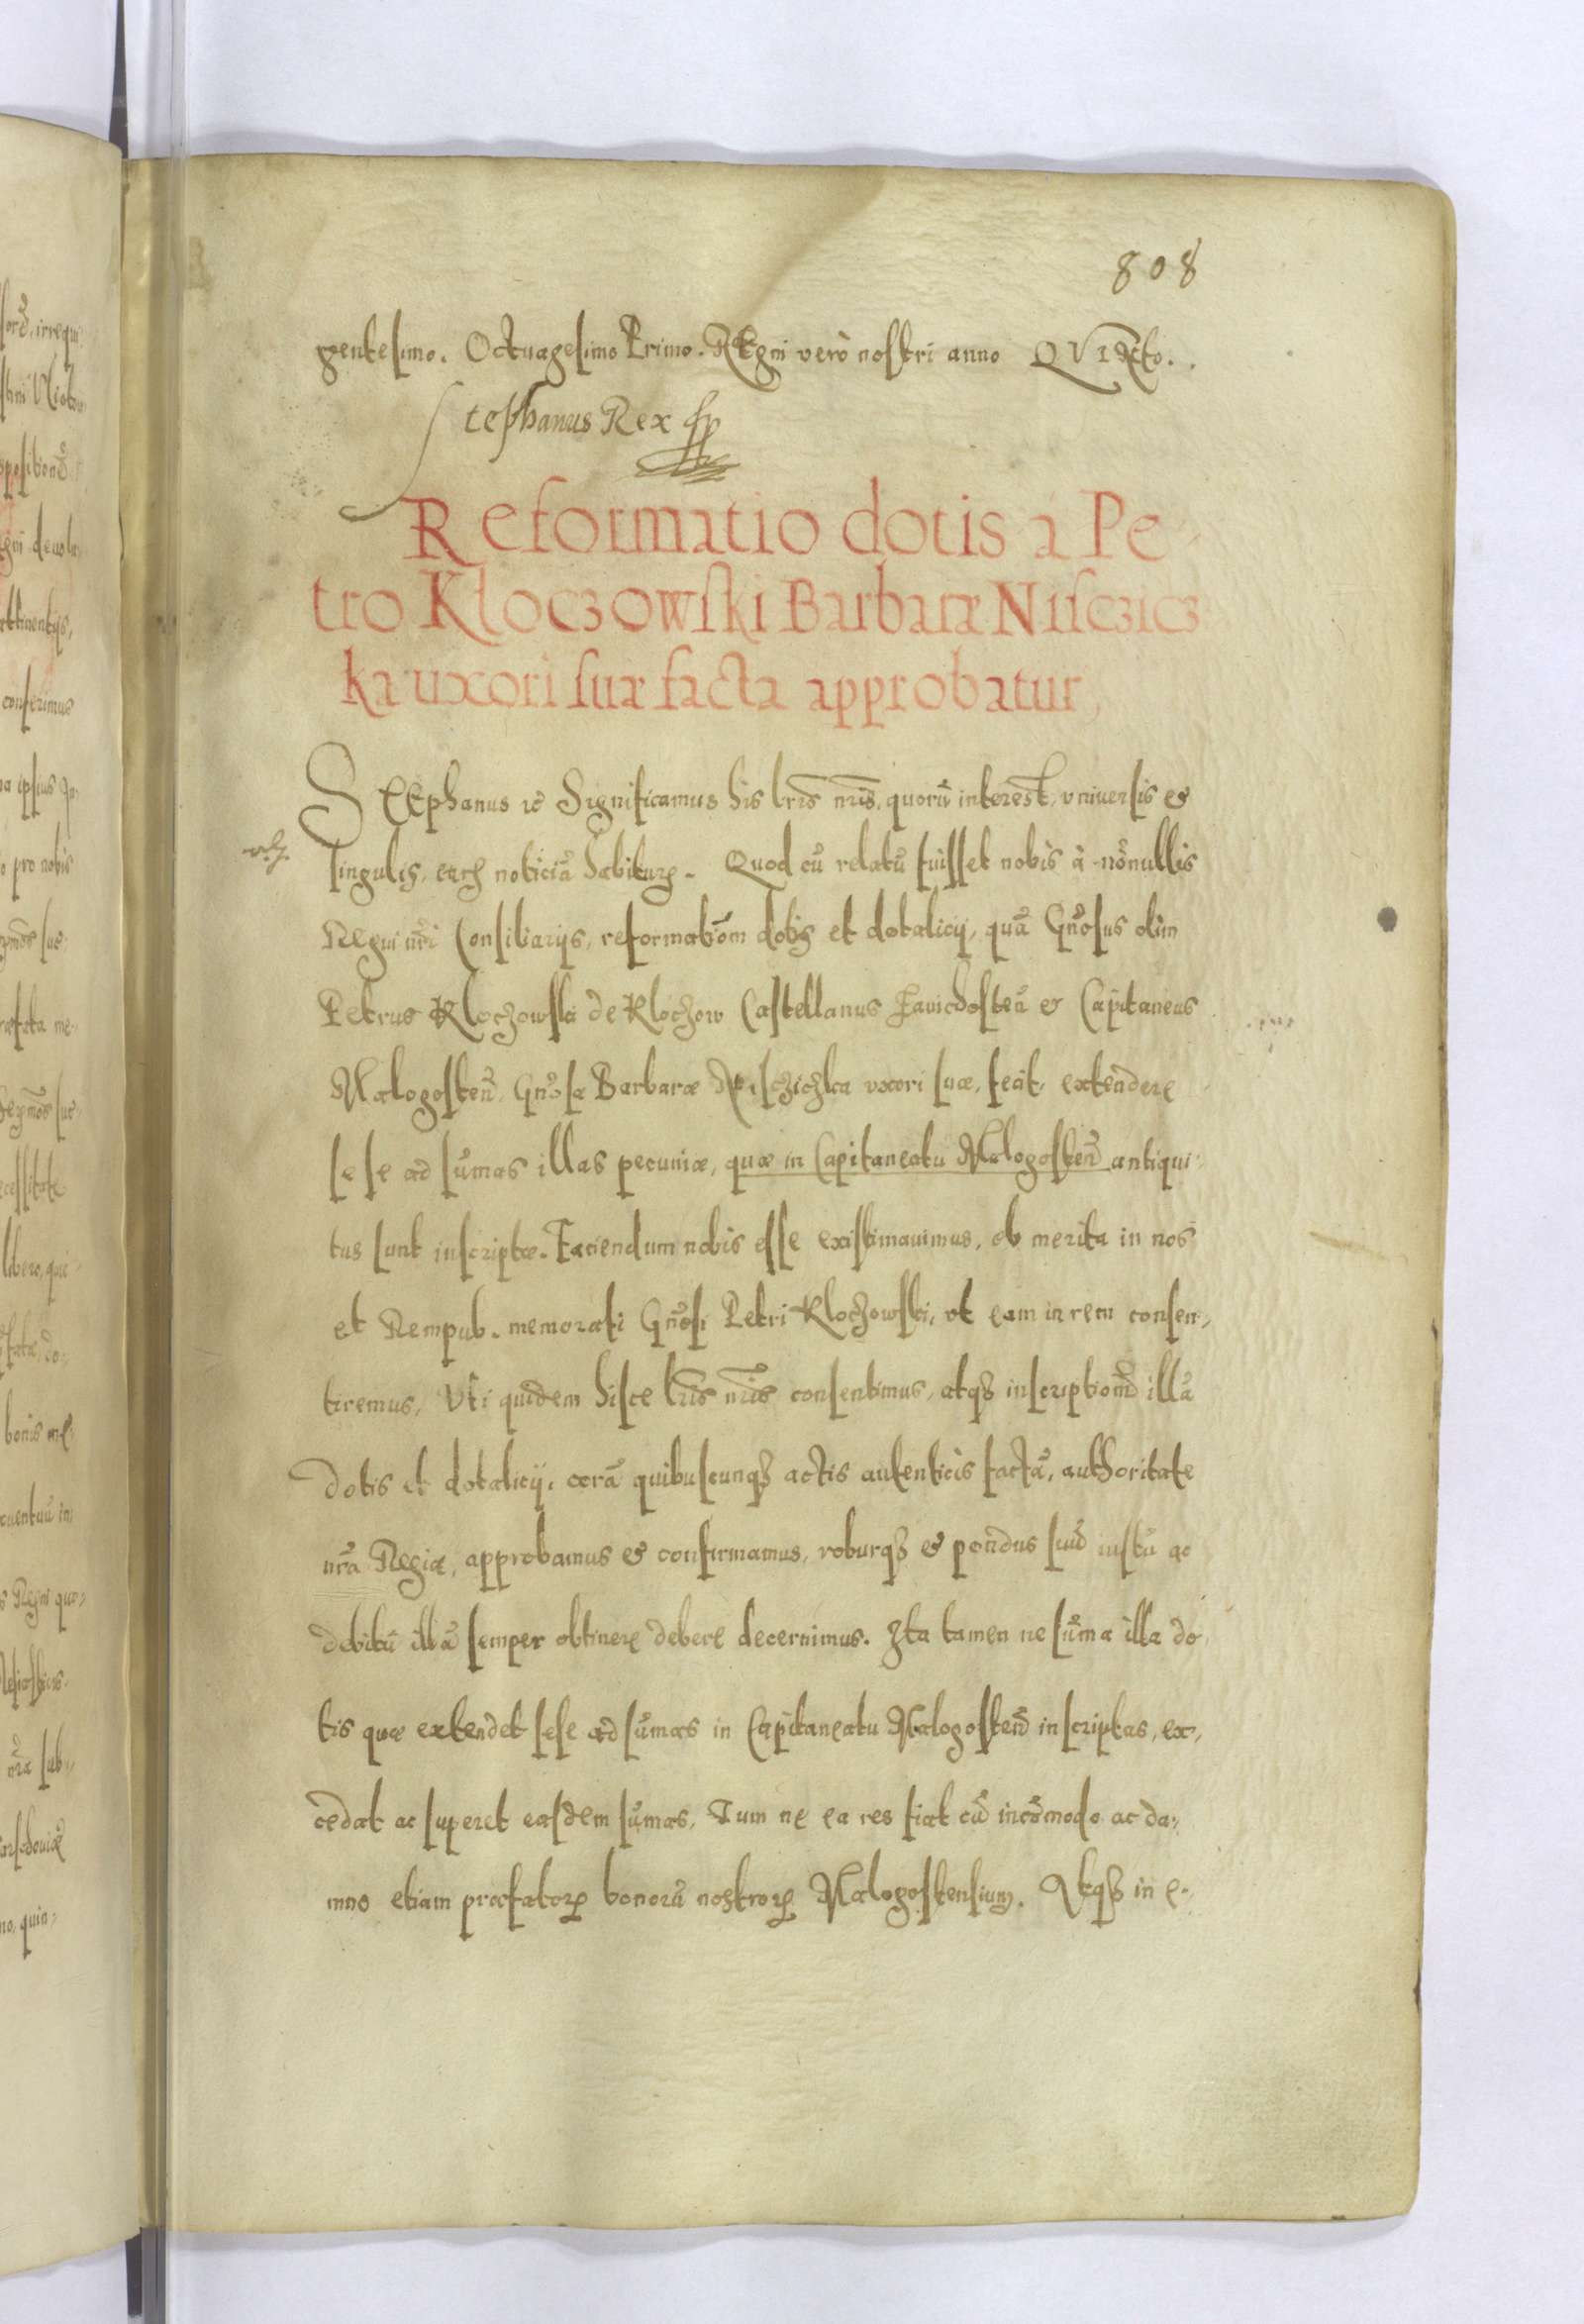 808
gentesimo. Octuagesimo Primo. REgni verò nostri anno QVINto..
Stephanus Rex
Reformatio dotis a Pe
tro Kloczowski Barbaræ Nisczicz
ka uxori suæ facta approbatur,
STEphanus rē Significamus his lr̃is nr̃is, quorũ interest, vniuersis et
singulis, noticiã habituris. Quod cũ relatũ fuisset nobis à nõnullis
Regni nr̃i Consiliarijs, reformatiõm dotis et dotalicij, quã Gñosus olim
Petrus Kloczowski de Kloczow Castellanus Zauichosteñ et Capitaneus
Malogosteñ, Gñosæ Barbaræ Niscziczka vxori suæ, fecit, extendere
se se ad sũmas illas pecuniæ, quæ in Capitaneatu Malogosteñ antiqui
tus sunt inscriptæ. Faciendum nobis esse existimauimus, ob merita in nos
et Rempub. memorati Gñosi Petri Kloczowski, vt eam in rem consen,
tiremus, Vti quidem hisce lr̃is nr̃is consentimus, atqꝫ inscriptionẽ illã
dotis et dotalicij, corã quibuscunqꝫ actis autenticis factã, authoritate
nr̃a Regia, approbamus et confirmamus, roburqꝫ et pondus suũ iustũ ac
debitũ illã semper obtinere debere decernimus. Ita tamen ne sũma illa do
tis quæ extendet sese ad sũmas in Capitaneatu Malogosteñ inscriptas, ex,
cedat ac superet easdem sũmas, Tum ne ea res fiat cũ incõmodo ac da,,
mno etiam præfatorꝝ bonorũ nostrorꝝ Malogostensium. Atqꝫ in e,